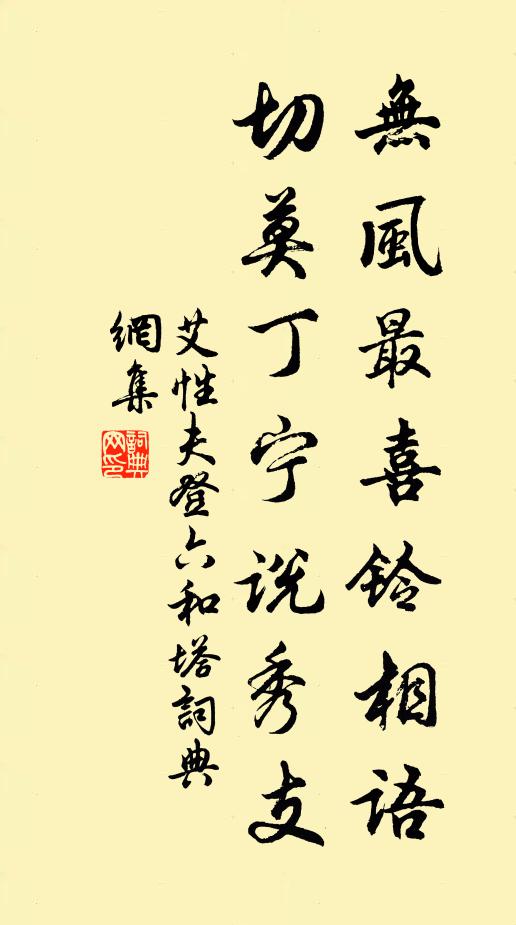 無風最喜鈴相語
切莫丁宁説秀支
艾性夫登六和塔詞典
網集
詞典網印